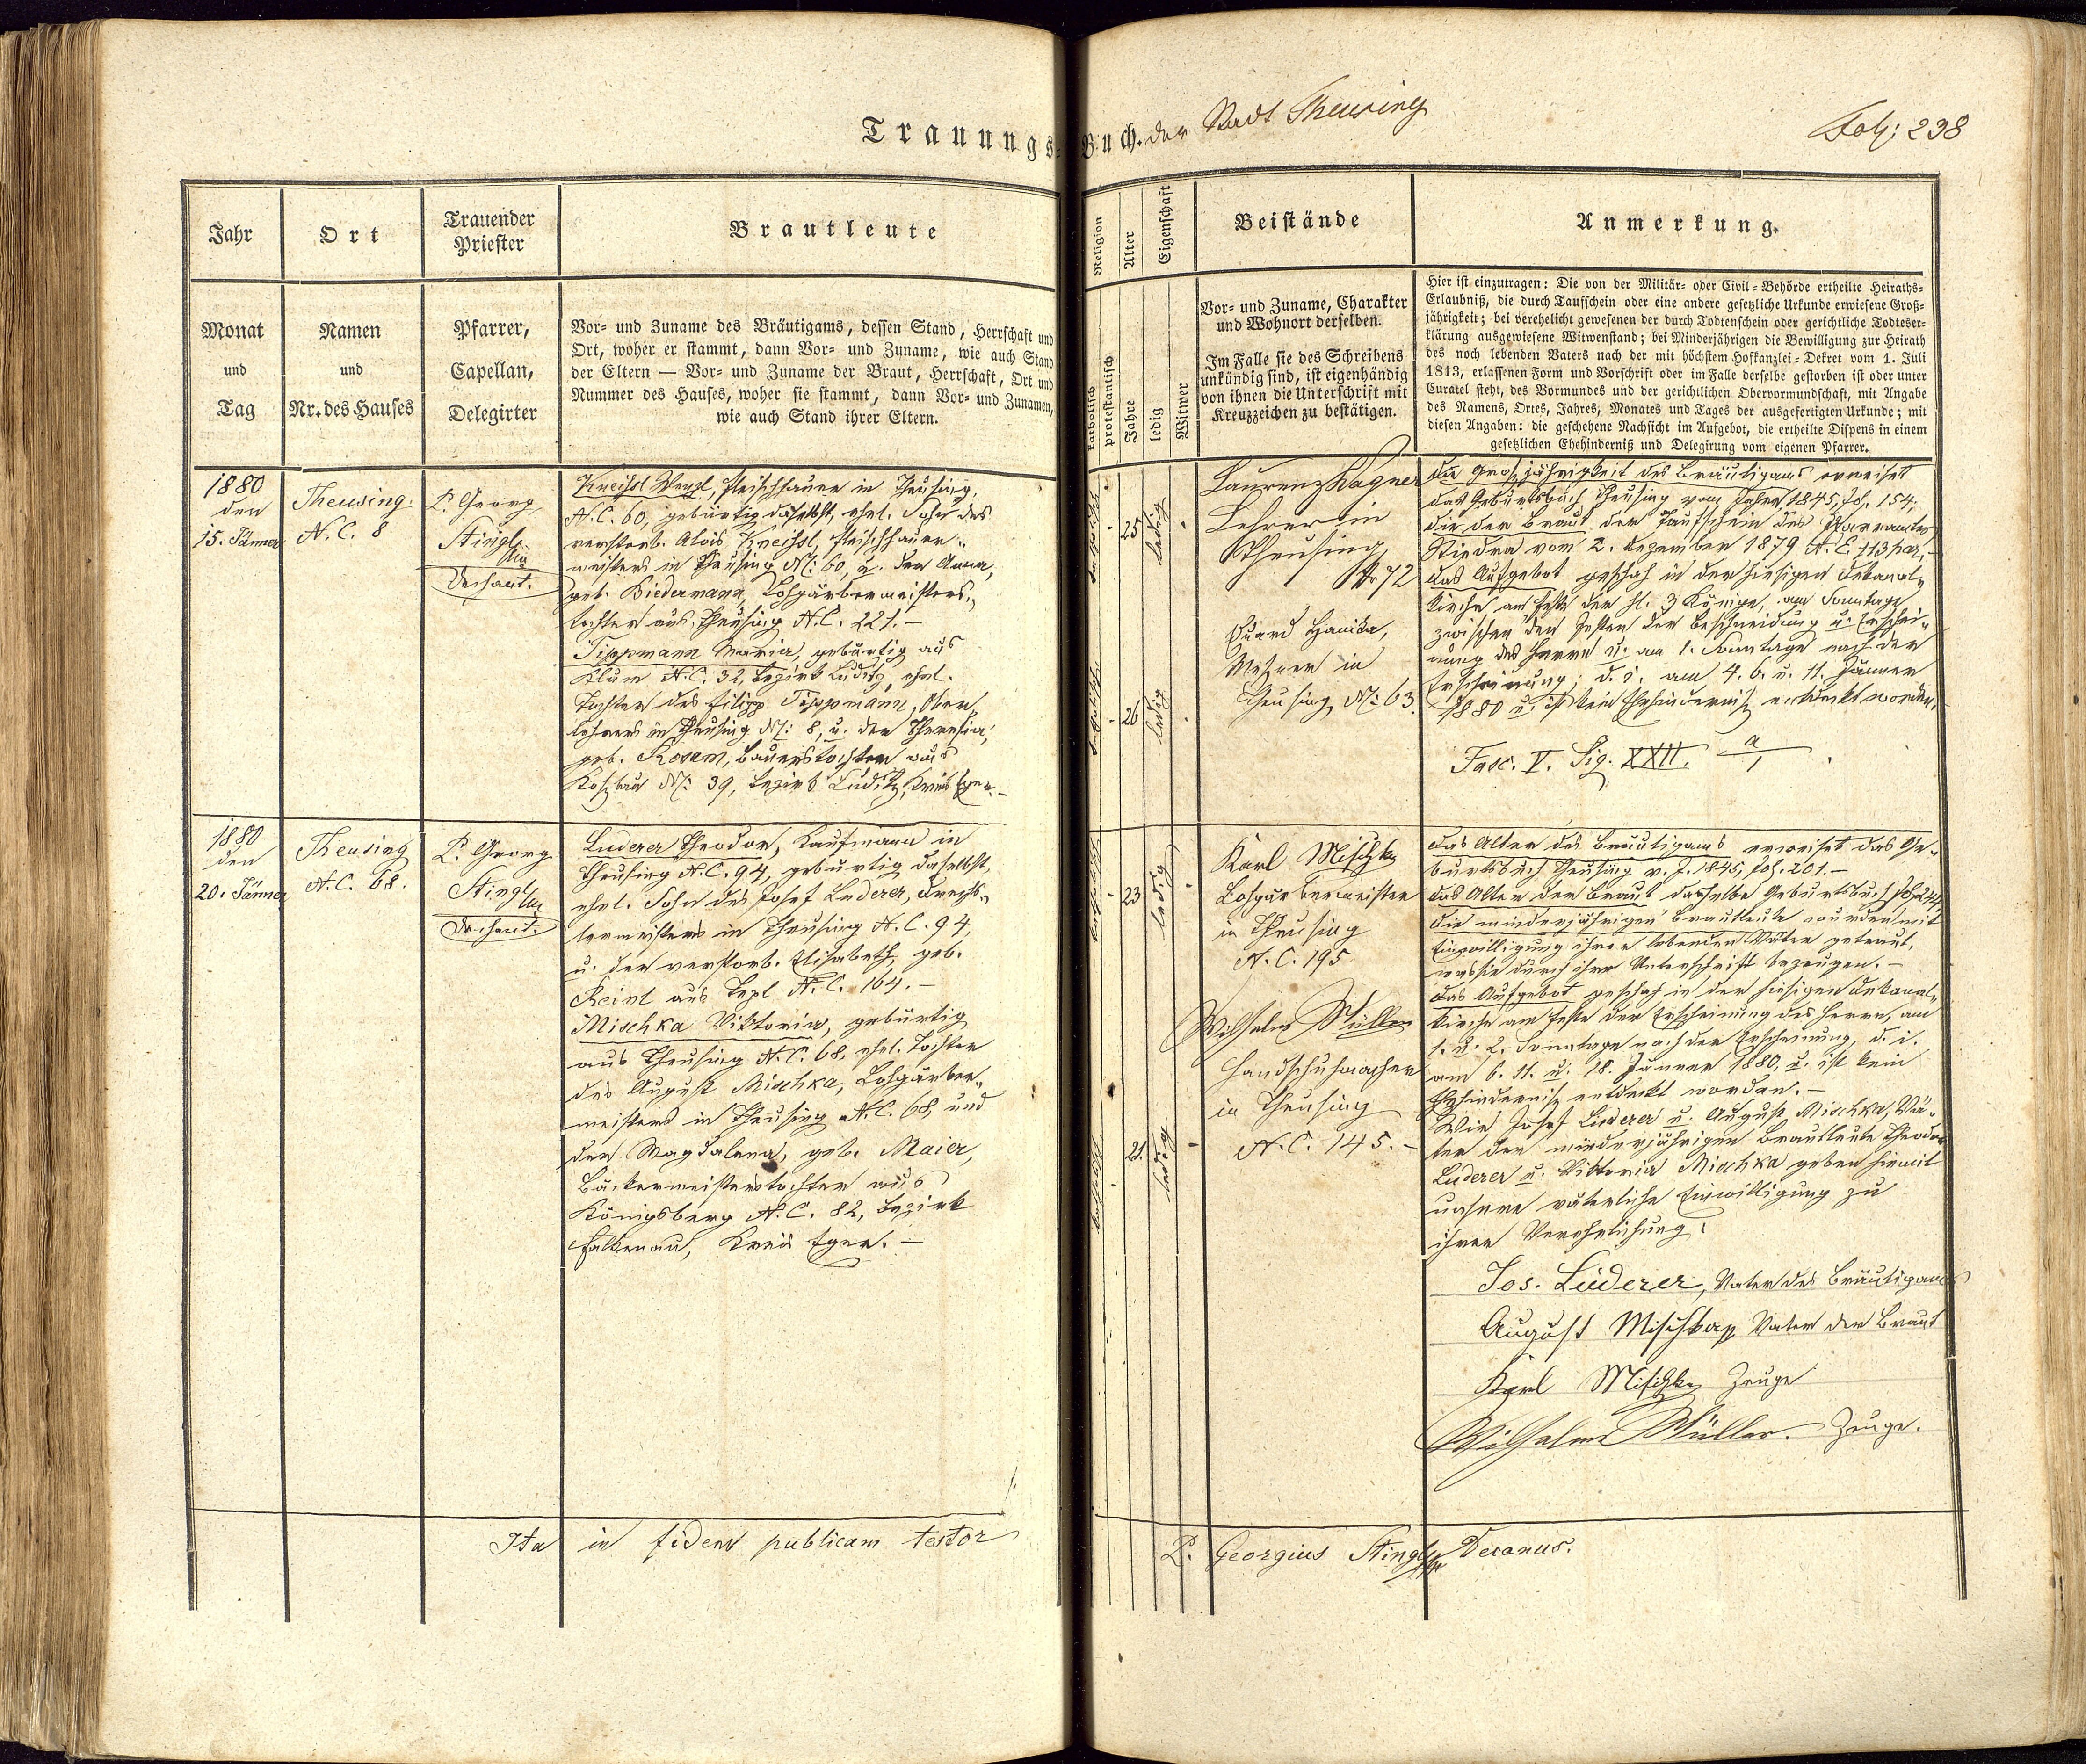 Trauungs-Buch. der Stadt Theusing
Fol: 238
Jahr
Ort
Trauender
Priester
Brautleute
Religion
Alter
Eigenschaft
Beistände
Anmerkung.
Monat
und
Tag
Namen
und
Nr. des Hauses
Pfarrer,
Capellan,
Delegirter
Vor- und Zuname des Bräutigams, dessen Stand, Herrschaft und
Ort, woher er stammt, dann Vor- und Zuname, wie auch Stand
der Eltern — Vor- und Zuname der Braut, Herrschaft, Ort und
Nummer des Hauses, woher sie stammt, dann Vor- und Zunamen,
wie auch Stand ihrer Eltern.
katholisch
protestantisch
Jahre
ledig
Witwer
Vor- und Zuname, Charakter
und Wohnort derselben.
Im Falle sie des Schreibens
unkündig sind, ist eigenhändig
von ihnen die Unterschrift mit
Kreuzzeichen zu bestätigen.
Hier ist einzutragen: Die von der Militär- oder Civil-Behörde ertheilte Heiraths-
Erlaubniß, die durch Taufschein oder eine andere gesetzliche Urkunde erwiesene Groß-
jährigkeit; bei verehelicht gewesenen der durch Todtenschein oder gerichtliche Todteser-
klärung ausgewiesene Witwenstand; bei Minderjährigen die Bewilligung zur Heirath
des noch lebenden Vaters nach der mit höchstem Hofkanzlei-Dekret vom 1. Juli
1813, erlassenen Form und Vorschrift oder im Falle derselbe gestorben ist oder unter
Curatel steht, des Vormundes und der gerichtlichen Obervormundschaft, mit Angabe
des Namens, Ortes, Jahres, Monates und Tages der ausgefertigten Urkunde; mit
diesen Angaben: die geschehene Nachsicht im Aufgebot, die ertheilte Dispens in einem
gesetzlichen Ehehinderniß und Delegirung vom eigenen Pfarrer.
1880
den
15. Jänner
Theusing
N.C. 8
P. Georg
Stingl
Dechant.
Kneissl Wenzl, Fleischhauer in Theusing,
N.C. 60, gebürtig daselbst, ehel. Sohn des
verstorb. Alois Kneissl, Fleischhauer-
meisters in Theusing N: 60, u. der Anna,
geb. Biedermann, Lohgärbermeisters-
tochter aus Theusing N.C. 221. –
Tippmann Maria, gebürtig aus
Klum N.C. 32, Bezirk Luditz, ehel.
Tochter des Filipp Tippmann, Ober-
lehrers in Theusing N: 8, u. der Theresia,
geb. Kosem, Bauerstochter aus
N: 39, Bezirk Luditz, Kreis Eger. –
katholisch
25
ledig
katholisch
26
ledig
Laurenz Wagner
Lehrer in
Theusing
Nr 72
Eduard Hanika,
Metzner in
Theusing N: 63.
Die Großjährigkeit des Bräutigams erweiset
das Geburtsbuch Theusing vom Jahre 1845, Fol. 154;
die der Braut der Taufschein des Pfarramtes
Stiedra vom 2. Dezember 1879 N.E. 113 par. –
Das Aufgebot geschah in der hiesigen Dekanal-
kirche am Feste der hl. 3 Könige, am Sonntage
zwischen den Festen der Beschneidung u. Erschei-
nung des Herrn u. am 1. Sonntage nach der
Erscheinung, d. i. am 4. 6. u. 11. Jänner
1880 u. ist kein Ehehinderniß entdeckt worden.
Fasc. V. Sig. XXII. a/1.
1880
den
20. Jänner
Theusing
N.C. 68.
P. Georg
Stingl
Dechant.
Luderer Theodor, Kaufmann in
Theusing N.C. 94, gebürtig daselbst,
ehel. Sohn des Josef Luderer, Drechs-
lermeisters in Theusing N.C. 94,
u. der verstorb. Elisabeth, geb.
Reinl aus Tepl N.C. 164. –
Mischka Viktoria, gebürtig
aus Theusing N.C. 68, ehel. Tochter
des August Mischka, Lohgärber-
meisters in Theusing N.C. 68, und
der Magdalena, geb. Maier,
Bäckermeisterstochter aus
Königsberg N.C. 82, Bezirk
Falkenau, Kreis Eger. –
katholisch
23
ledig
katholisch
21.
ledig
Karl Mischka
Lohgärbermeister
in Theusing
N.C. 195
Wilhelm Müller
Handschuhmacher
in Theusing
N.C. 145. –
Das Alter des Bräutigams erweiset das Ge-
burtsbuch Theusing v. J. 1845, Fol. 201. –
Das Alter der Braut dasselbe Geburtsbuch
Die minderjährigen Brautleute wurden mit
Einwilligung ihrer lebenden Väter getraut,
was sie durch ihre Unterschrift bezeugen. –
Das Aufgebot geschah in der hiesigen Dekanal-
kirche am Feste der Erscheinung des Herrn, am
1. u. 2. Sonntage nach der Erscheinung, d. i.
am 6. 11. u. 18. Jänner 1880, u. ist kein
Ehehinderniß entdeckt worden. –
Wir Josef Luderer u. August Mischka, Vä-
ter der minderjährigen Brautleute Theodor
Luderer u. Viktoria Mischka geben hiemit
unsere väterliche Einwilligung zu
ihrer Verehelichung:
Jos. Luderer, Vater des Bräutigams
August Mischka Vater der Braut
Karl Mischka Zeuge
Wilhelm Müller. Zeuge.
Ita in fidem publicam testor
P. Georgius Stingl Decanus.